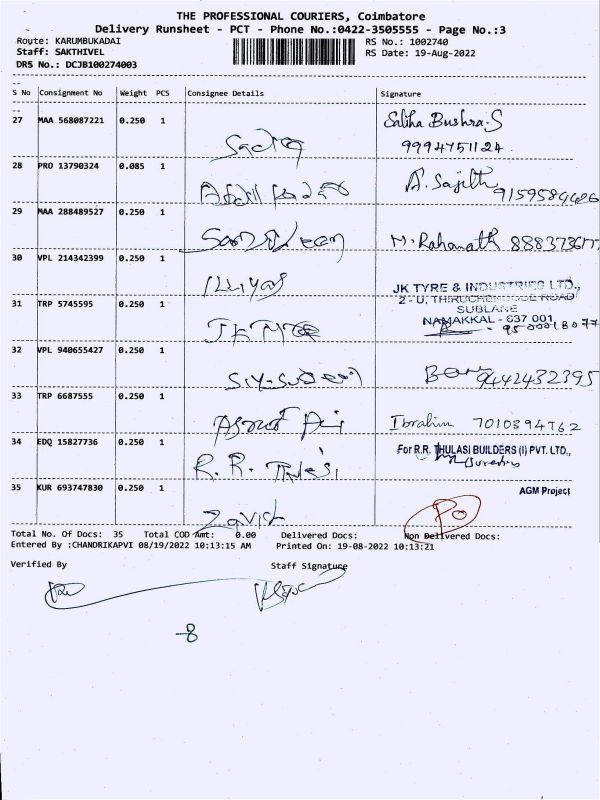 THE PROFESSIONAL COURIERS, Coimbatore
Delivery Runsheet - PCT - Phone No.:0422-3505555 - Page No.:3
Route: KARUMBUKADAI
RS No.: 1002740
Staff: SAKTHIVEL
RS Date: 19-Aug-2022
DRS No.: DCJB100274003
S No Consignment No Weight PCS Consignee Details Signature
27 MAA 568087221 0.250 1 Saliha Bushra.S
9994751124
28 PRO 13790324 0.085 1 A. Sajith
29 MAA 288489527 0.250 1
M. Rahamath
30 VPL 214342399 0.250 1
Illiyas
JK TYRE & INDUSTRIES LTD.,
31 TRP 5745595 0.250 1
SUBLANE
NAMAKKAL - 637 001.
95000 18077
32 VPL 940655427 0.250 1
9442432395
33 TRP 6687555 0.250 1
Ibrahim 7010394762
34 EDQ 15827736 0.250 1 For R.R. THULASI BUILDERS (I) PVT. LTD.,
R. R. Thulasi
35 KUR 693747830 0.250 1 AGM Project
PO
Total No. Of Docs: 35 Total COD Amt: 0.00 Delivered Docs: Non Delivered Docs:
Entered By :CHANDRIKAPVI 08/19/2022 10:13:15 AM Printed On: 19-08-2022 10:13:21
Verified By Staff Signature
-8